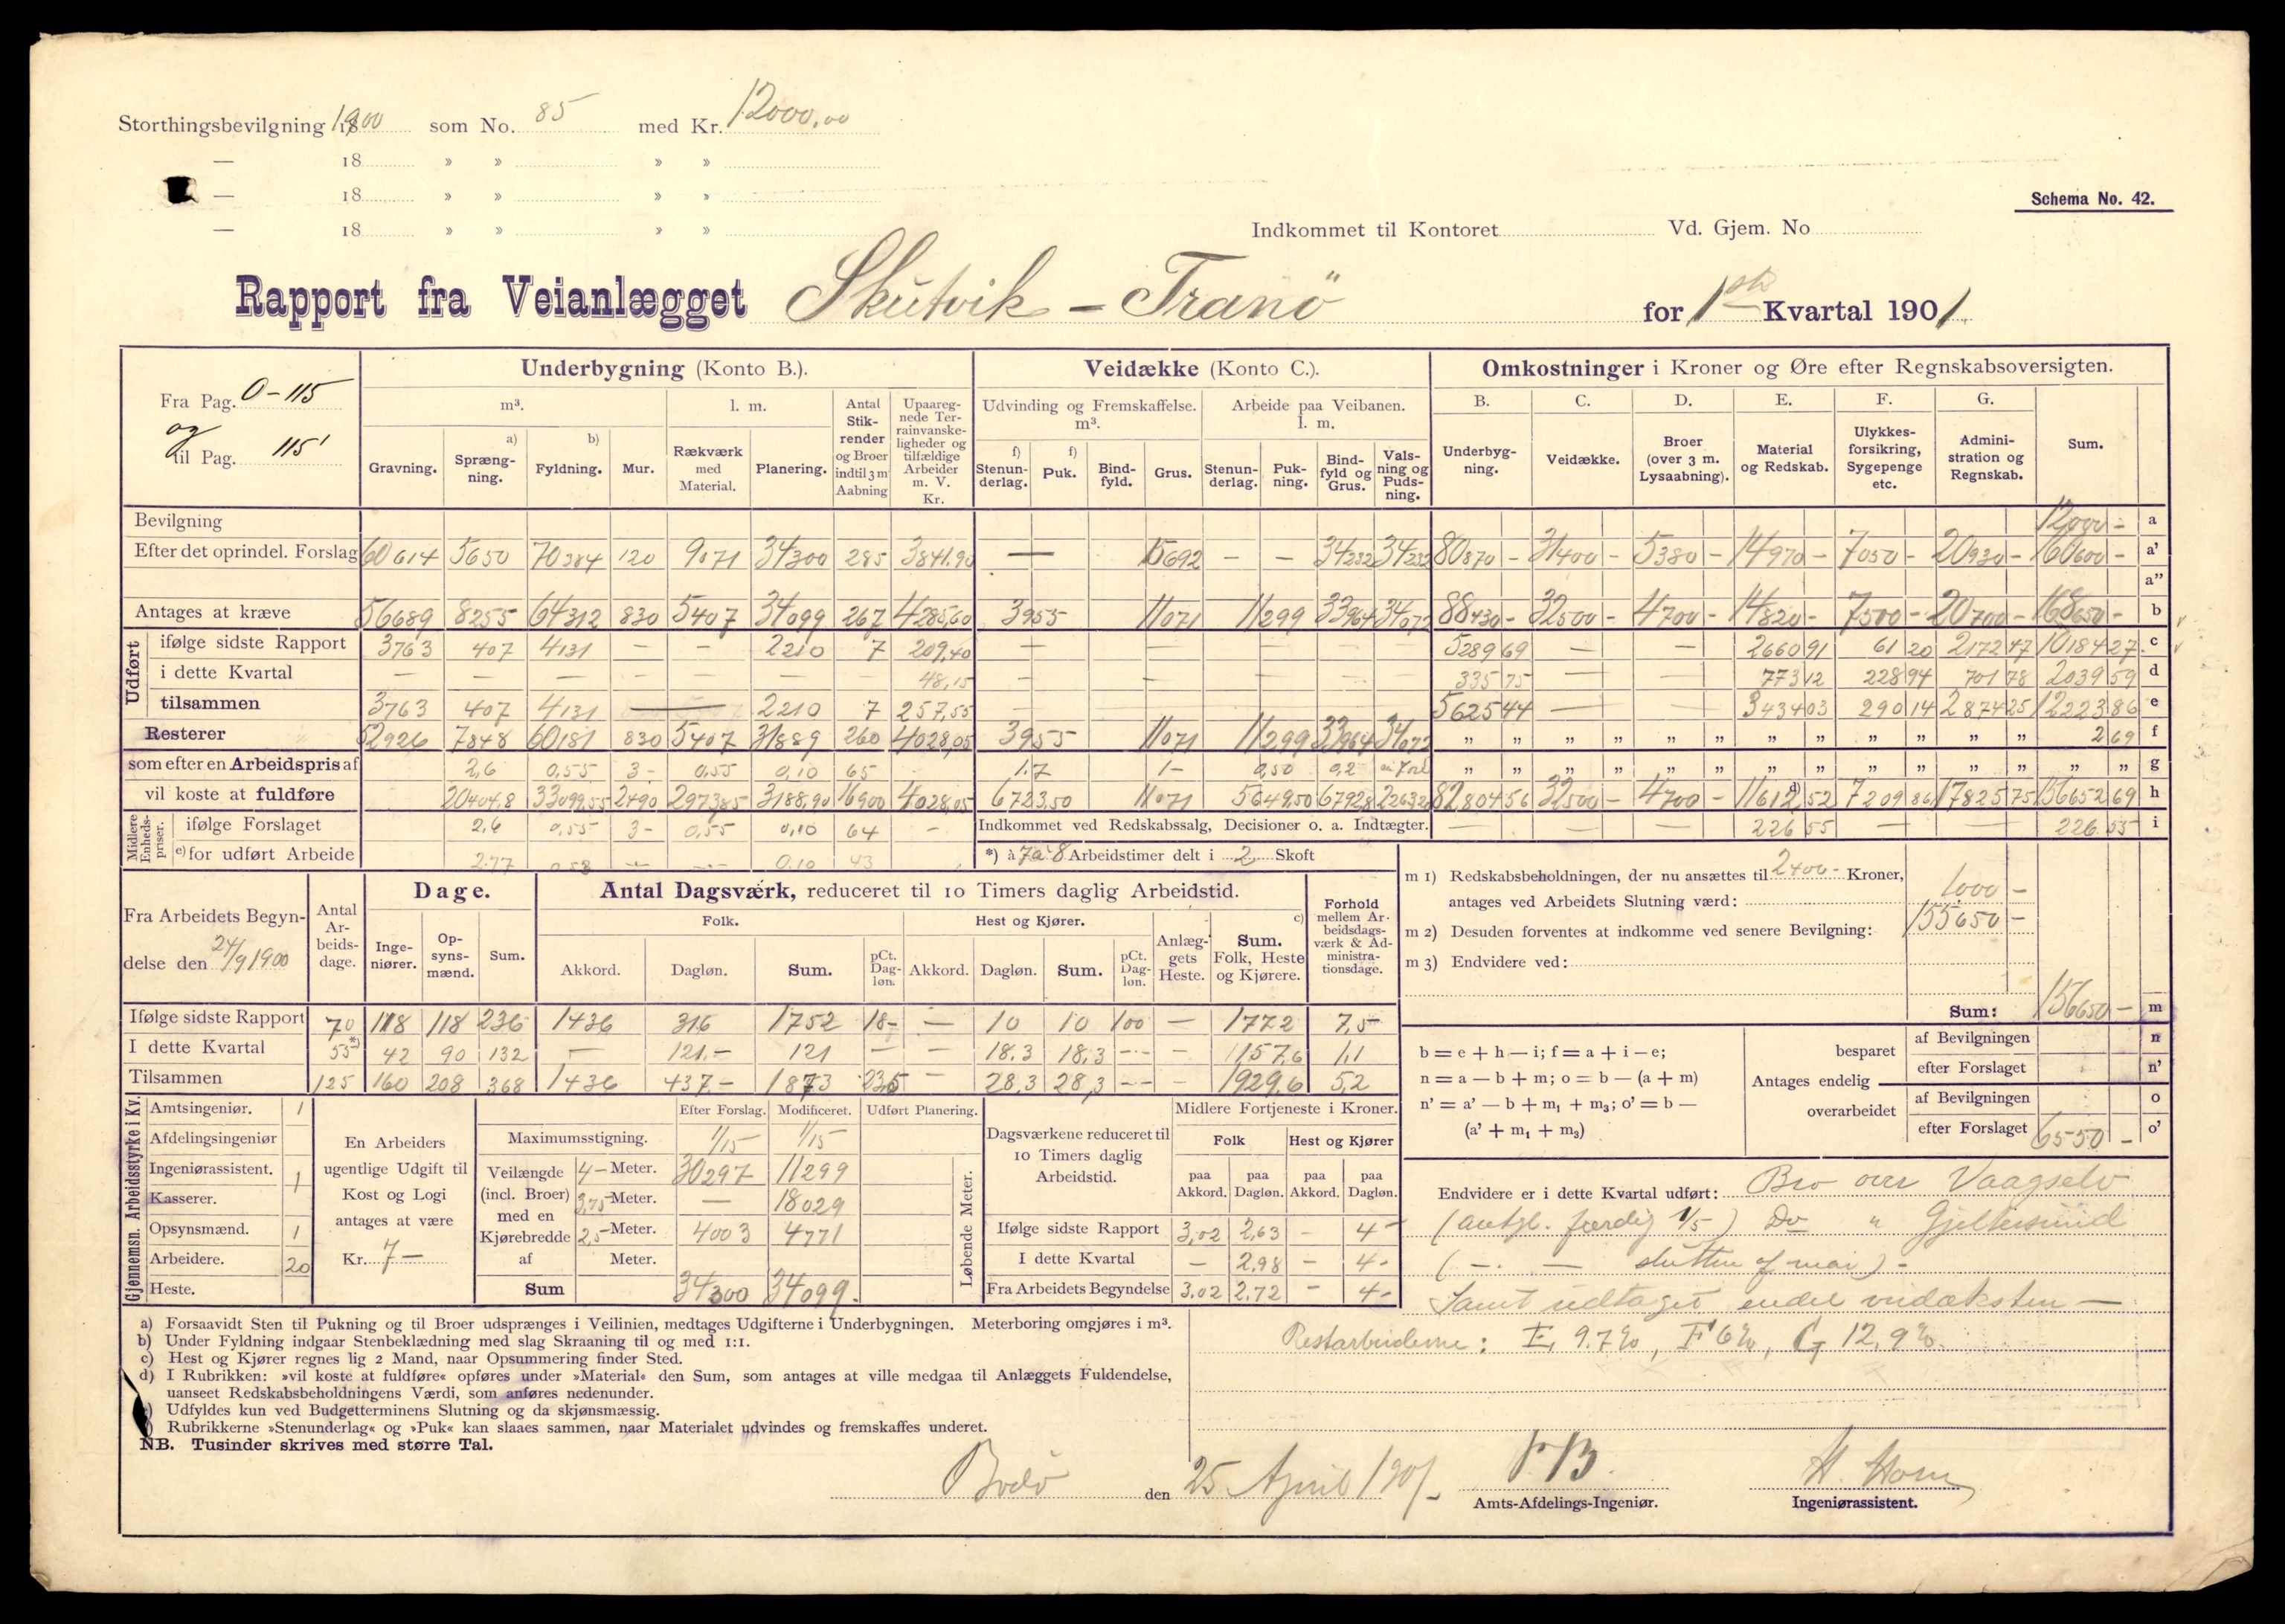 Storthingsbevilgning 1900 som No. 85 med Kr. 12000.00
— 18 » » » »
— 18 » » » »
— 18 » » » »
Schema No. 42.
Indkommet til Kontoret Vd. Gjem. No
Rapport fra Veianlægget Skutvik – Tranö for 1ste Kvartal 1901.
Fra Pag. 0 – 115
og
til Pag. 115'
Underbygning (Konto B.). Veidække (Konto C.). Omkostninger i Kroner og Øre efter Regnskabsoversigten.
m³. l. m. Antal Stikrender og Broer indtil 3 m Aabning Upaaregnede Terrainvanskeligheder og tilfældige Arbeider m. V. Kr.
Gravning. a) Sprængning. b) Fyldning. Mur. Rækværk med Material. Planering.
Udvinding og Fremskaffelse. m³. Arbeide paa Veibanen. l. m.
f) Stenunderlag. f) Puk. Bindfyld. Grus. Stenunderlag. Pukning. Bindfyld og Grus. Valsning og Pudsning.
B. C. D. E. F. G. Sum.
Underbygning. Veidække. Broer (over 3 m. Lysaabning). Material og Redskab. Ulykkesforsikring, Sygepenge etc. Administration og Regnskab.
Bevilgning 12000 – a
Efter det oprindel. Forslag 60614 5650 70384 120 9071 34300 285 3841.90 — 15692 – – 34232 34232 80870 – 31400 – 5380 – 14970 – 7050 – 20930 – 160600 – a'
a"
Antages at kræve 56689 8255 64312 830 5407 34099 267 4285,60 3955 11071 11299 33964 34072 88430 – 32500 – 4700 – 14820 – 7500 – 20700 – 168650 – b
Udført
ifølge sidste Rapport 3763 407 4131 — – 2210 7 209,40 — — — — 5289 69 — — 2660 91 61 20 2172 47 10184 27 c
i dette Kvartal — — — — — — — 48,15 — — — — 335 75 — — 773 12 228 94 701 78 2039 59 d
tilsammen 3763 407 4131 — 2210 7 257,55 — — — — 5625 44 — — 3434 03 290 14 2874 25 12223 86 e
Resterer 52926 7848 60181 830 5407 31889 260 4028,05 3955 11071 11299 33964 34072 „ „ „ „ „ „ „ „ „ „ „ „ 2 69 f
som efter en Arbeidspris af 2,6 0,55 3 – 0,55 0,10 65 1.7 1 – 0,50 0,2 „ „ „ „ „ „ „ „ „ „ „ „ „ „ g
vil koste at fuldføre 20404,8 33099,55 2490 2973,85 3188,90 16900 4028,05 6723,50 11071 5649,50 6792,8 82,804 56 32500 – 4700 – 11612 52 7209 86 17825 75 156652 69 h
Midlere Enhedspriser. e)
ifølge Forslaget 2,6 0,55 3 – 0,55 0,10 64 – Indkommet ved Redskabssalg, Decisioner o. a. Indtægter. — — — 226 55 — — 226 55 i
for udført Arbeide 2.77 0.58 — — 0.10 43 *) à 7à8 Arbeidstimer delt i 2 Skoft
Fra Arbeidets Begyndelse den 24/9 1900
Antal Arbeidsdage. Dage. Antal Dagsværk, reduceret til 10 Timers daglig Arbeidstid. Forhold mellem Arbeidsdagsværk & Administrationsdage.
Ingeniører. Opsynsmænd. Sum. Folk. Hest og Kjører. Anlæggets Heste. c) Sum. Folk, Heste og Kjørere.
Akkord. Dagløn. Sum. pCt. Dagløn. Akkord. Dagløn. Sum. pCt. Dagløn.
Ifølge sidste Rapport 70 118 118 236 1436 316 1752 18 – — 10 10 100 — 1772 7,5
I dette Kvartal 55*) 42 90 132 — 121. – 121 — — 18.3 18,3 – – – 157,6 1,1
Tilsammen 125 160 208 368 1436 437. – 1873 23,5 – 28,3 28,3 – – – 1929,6 5,2
m 1) Redskabsbeholdningen, der nu ansættes til 2400 – Kroner,
antages ved Arbeidets Slutning værd: 1000 –
m 2) Desuden forventes at indkomme ved senere Bevilgning: 155650 –
m 3) Endvidere ved:
Sum: 156650 – m
b = e + h — i; f = a + i — e;
n = a — b + m; o = b — (a + m)
n' = a' — b + m₁ + m₃; o' = b —
(a' + m₁ + m₃)
Antages endelig besparet af Bevilgningen n
efter Forslaget n'
overarbeidet af Bevilgningen o
efter Forslaget 6550 – o'
Gjennemsn. Arbeidsstyrke i Kv.
Amtsingeniør. 1
Afdelingsingeniør
Ingeniørassistent. 1
Kasserer.
Opsynsmænd. 1
Arbeidere. 20
Heste.
En Arbeiders
ugentlige Udgift til
Kost og Logi
antages at være
Kr. 7 –
Efter Forslag. Modificeret. Udført Planering.
Maximumsstigning. 1/15 1/15
Veilængde (incl. Broer) med en Kjørebredde af
4 – Meter. 30297 11299
3,75 Meter. — 18029
2,5 Meter. 4003 4771
Meter.
Sum 34300 34099.
Løbende Meter.
Dagsværkene reduceret til
10 Timers daglig
Arbeidstid.
Midlere Fortjeneste i Kroner.
Folk Hest og Kjører
paa Akkord. paa Dagløn. paa Akkord. paa Dagløn.
Ifølge sidste Rapport 3,02 2,63 – 4 –
I dette Kvartal – 2,98 – 4 –
Fra Arbeidets Begyndelse 3,02 2,72 – 4 –
Endvidere er i dette Kvartal udført: Bro over Vaagselv
(antgl. færdig 1/5) Do " Gjeltesund
( – . — slutten af mai) –
Samt udtaget endel veidæksten —
Restarbeiderne: E 9.7 %, F 6 %, G 12,9 %.
a) Forsaavidt Sten til Pukning og til Broer udsprænges i Veilinien, medtages Udgifterne i Underbygningen. Meterboring omgjøres i m³.
b) Under Fyldning indgaar Stenbeklædning med slag Skraaning til og med 1:1.
c) Hest og Kjører regnes lig 2 Mand, naar Opsummering finder Sted.
d) I Rubrikken: »vil koste at fuldføre« opføres under »Material« den Sum, som antages at ville medgaa til Anlæggets Fuldendelse,
uanseet Redskabsbeholdningens Værdi, som anføres nedenunder.
Udfyldes kun ved Budgetterminens Slutning og da skjønsmæssig.
Rubrikkerne »Stenunderlag« og »Puk« kan slaaes sammen, naar Materialet udvindes og fremskaffes underet.
NB. Tusinder skrives med større Tal.
Bodö den 25 April 1901
Amts-Afdelings-Ingeniør.
H. Horn
Ingeniørassistent.